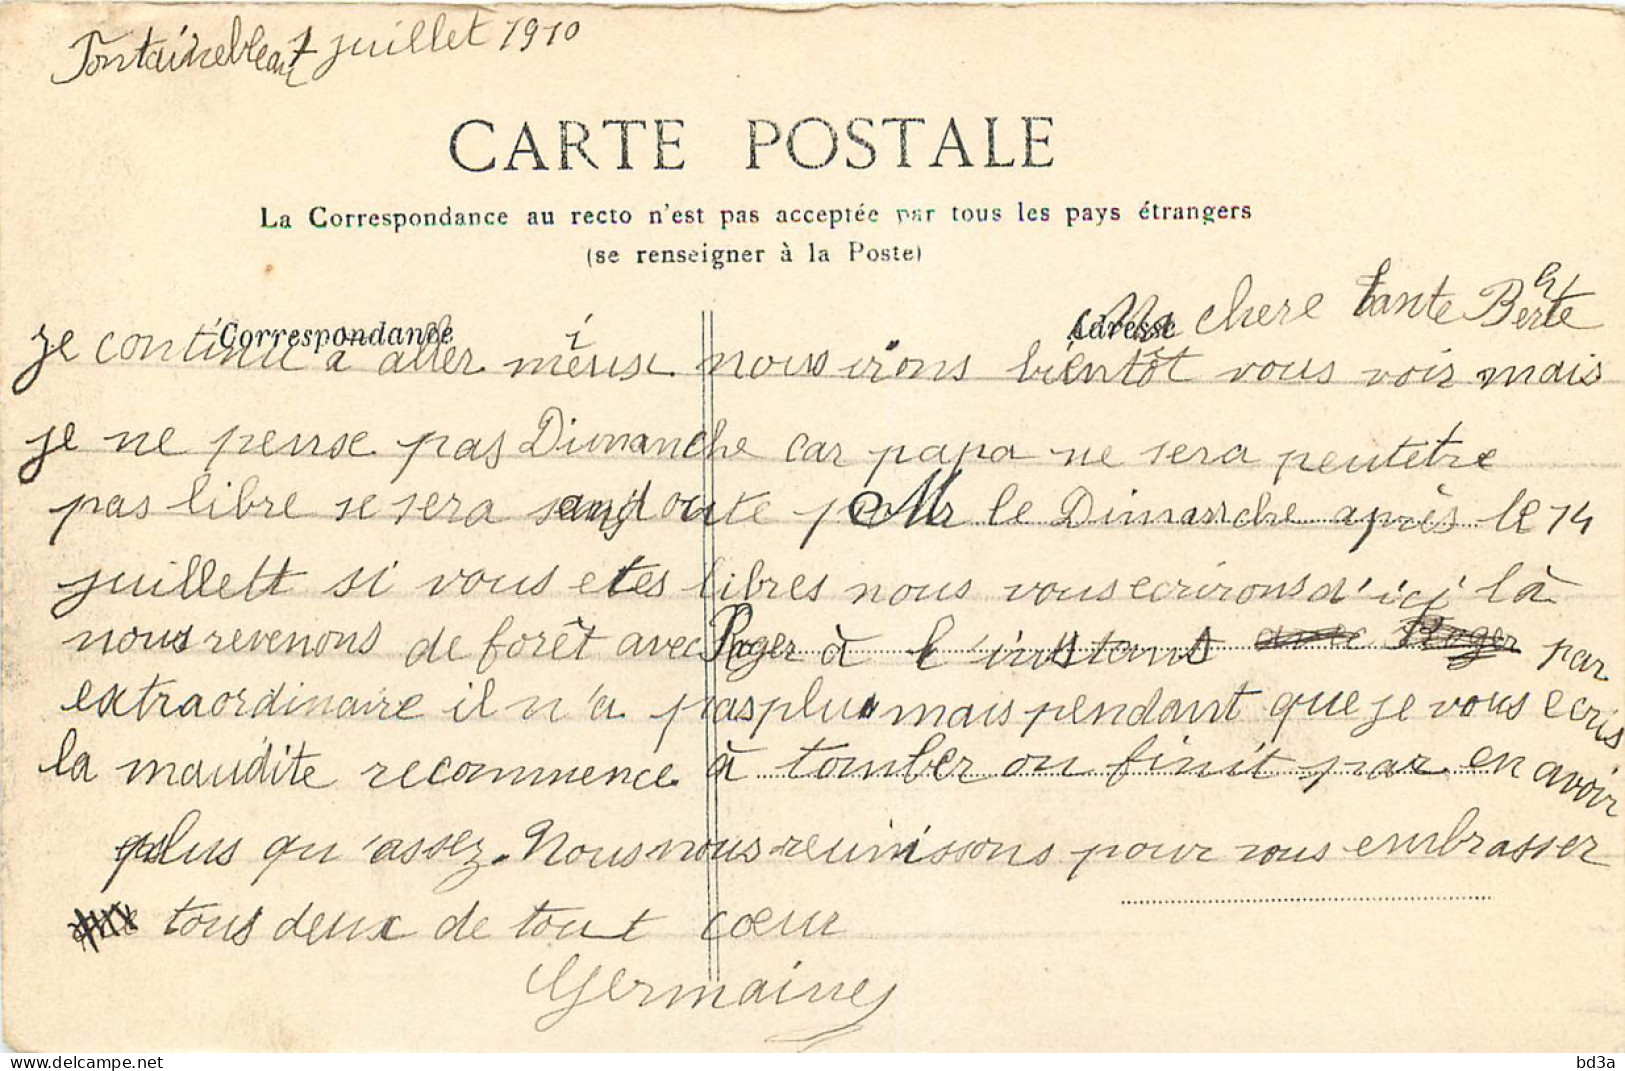 Fontainebleau 7 juillet 1910
CARTE POSTALE
La Correspondance au recto n'est pas acceptée par tous les pays étrangers
(se renseigner à la Poste)
Correspondance
Adresse
Ma chere tante Berthe
je continu a aller mieux nous irons bientôt vous voir mais
je ne pense pas Dimanche car papa ne sera peutetre
pas libre se sera sans doute pour le Dimanche après le 14
juillett si vous etes libres nous vous ecrirons d'ici là
nous revenons de forêt avec Roger à l'instant avec Roger par
extraordinaire il n'a pas plu mais pendant que je vous ecris
la maudite recommence à tomber on finit par en avoir
plus qu'assez. Nous nous reunissons pour vous embrasser
tous deux de tout cœur
Germaine
bd3a